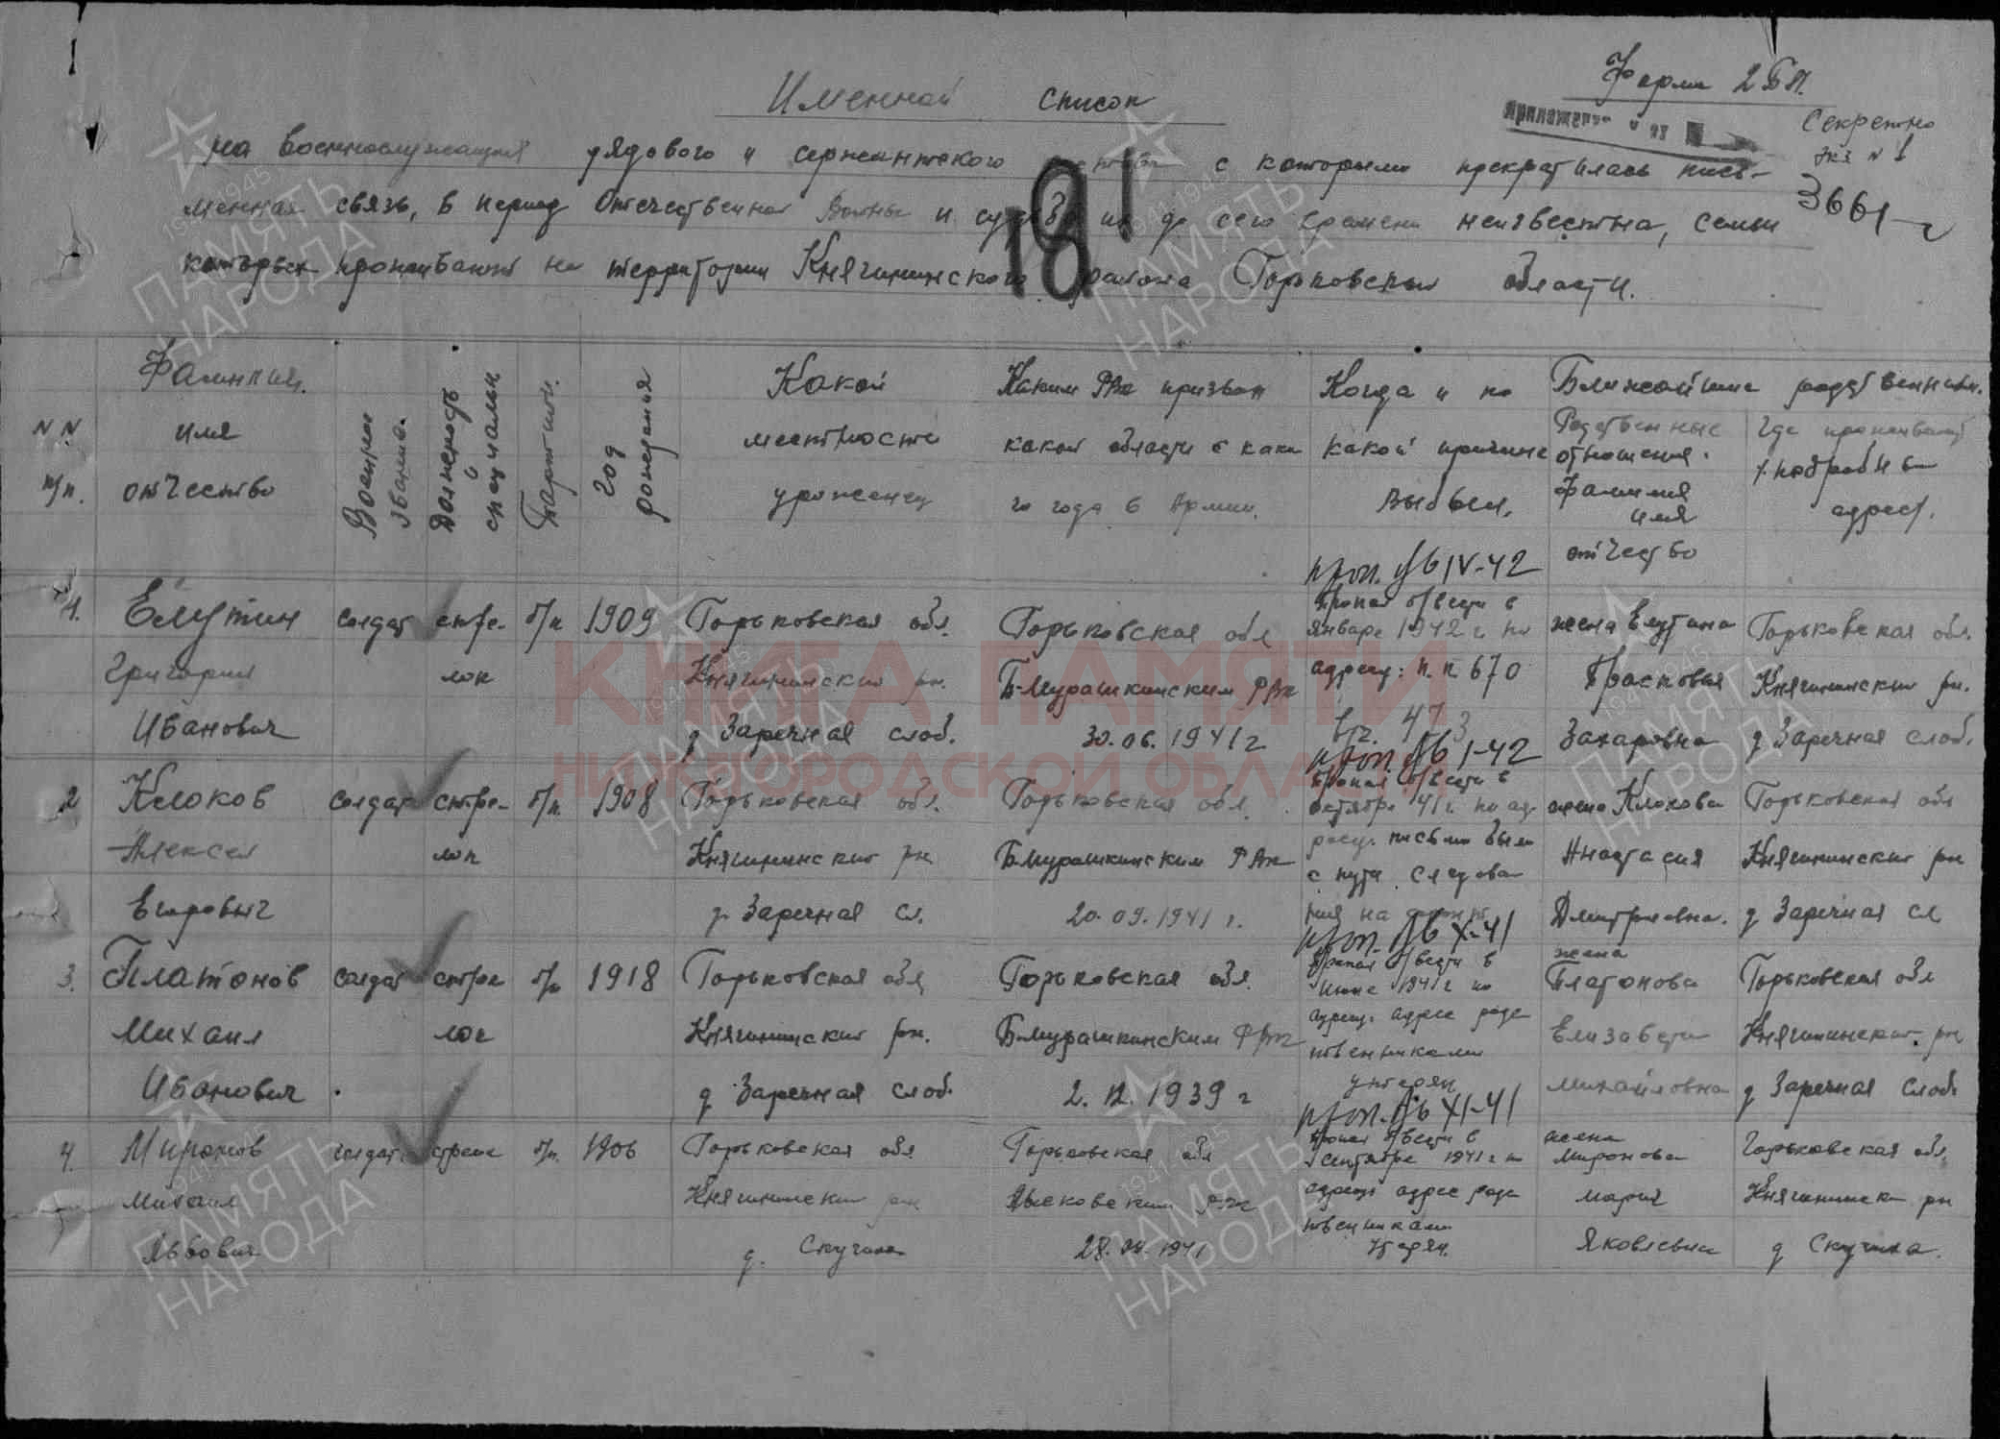 Форма 2БП.
Именной список
Приложение
Секретно
экз N 1
на военнослужащих рядового и сержантского состава с которыми прекратилась пись-
3661
менная связь, в период Отечественной Войны и судьба их до сего времени неизвестна, семьи
которых проживают на территории Княгининского района Горьковской области.
181
18
N N п/п.
Фамилия. имя отчество
Военное звание.
Должность и специальн
Партийн.
Год рождения
Какой местности уроженец
Каким РВК призван какой области с како го года в Армии.
Когда и по какой причине выбыл.
Ближайшие родственники.
Родственные отношения. фамилия имя отчество
Где проживают /подробный адрес/.
1. Елутин солдат стре- б/п 1909 Горьковская обл. Горьковская обл
проп. б/в IV-42
пропал б/вести в
январе 1942 г по
жена Елутина Горьковская обл.
Григорий лок Княгининский рн. Б-Мурашкинским РВК адресу: п.п 670 Прасковья Княгининский рн.
Иванович д Заречная слоб. 30.06.1941г 473 Захаровна д Заречная слоб.
проп. б/в 1-42
2 Клоков солдат стре- б/п. 1908 Горьковская обл. Горьковская обл.
пропал б/вести в
октябре 41г. по ад-
жена Клокова Горьковская обл
Алексей лок Княгининский рн Б-Мурашкинским РВК ресу: письмо было Анастасия Княгининский рн
с пути следова
Егорович д. Заречная сл. 20.09.1941 г. ния на фронт Дмитриевна. д Заречная сл
проп. б/в X-41
3. Платонов солдат стрел б/п 1918 Горьковская обл Горьковская обл.
пропал б/вести в
июне 1941г по
жена
Платонова Горьковская обл
Михаил лок Княгининский рн. Б-Мурашкинским РВК адресу: адрес родс Елизавета Княгининский рн
твенниками
Иванович д. Заречная слоб. 2.12.1939 г утерян Михайловна д Заречная слоб
проп. б/в XI-41
4. Миронов солдат стрелк б/п. 1906 Горьковская обл Горьковская обл
пропал б/вести в
сентябре 1941 г по
жена
Миронова Горьковская обл.
Михаил Княгининский рн Лысковским РВК адресу адрес родс Мария Княгининск рн
твенниками
Львович д. Скучиха 1941 утерян. Яковлевна д Скучиха.
КНИГА ПАМЯТИ
НИЖЕГОРОДСКОЙ ОБЛАСТИ
1941-1945
ПАМЯТЬ
НАРОДА